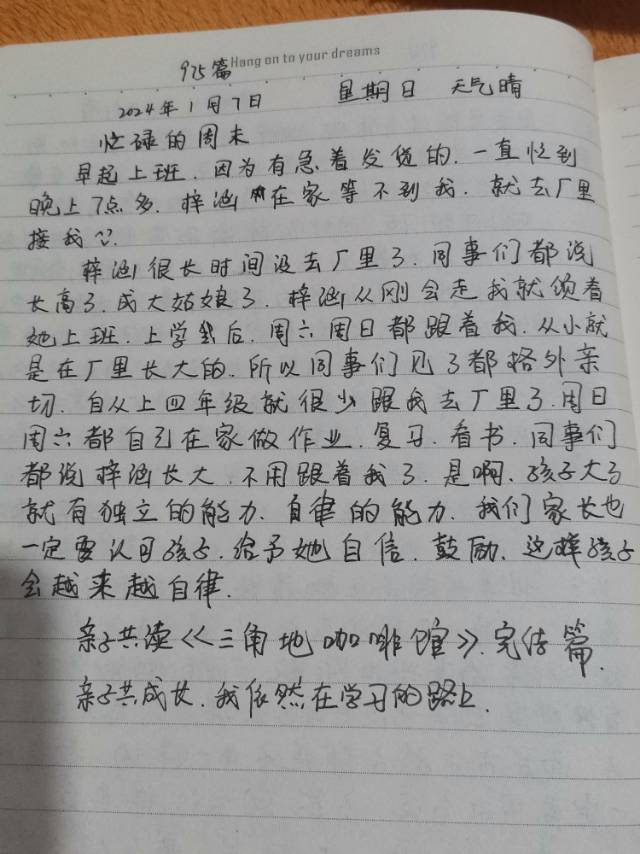 Hang on to your dreams
925篇
2024年1月7日 星期日 天气晴
忙碌的周末
早起上班.因为有急着发货的.一直忙到
晚上7点多.梓涵在家等不到我.就去厂里
接我
梓涵很长时间没去厂里了.同事们都说
长高了.成大姑娘了.梓涵从刚会走我就领着
她上班.上学后.周六周日都跟着我.从小就
是在厂里长大的.所以同事们见了都格外亲
切.自从上四年级就很少跟我去厂里了.周日
周六都自己在家做作业.复习.看书.同事们
都说梓涵长大.不用跟着我了.是啊.孩子大了
就有独立的能力.自律的能力.我们家长也
一定要认可孩子.给予她自信.鼓励.这样孩子
会越来越自律.
亲子共读《三角地咖啡馆》.完结篇.
亲子共成长.我依然在学习的路上.